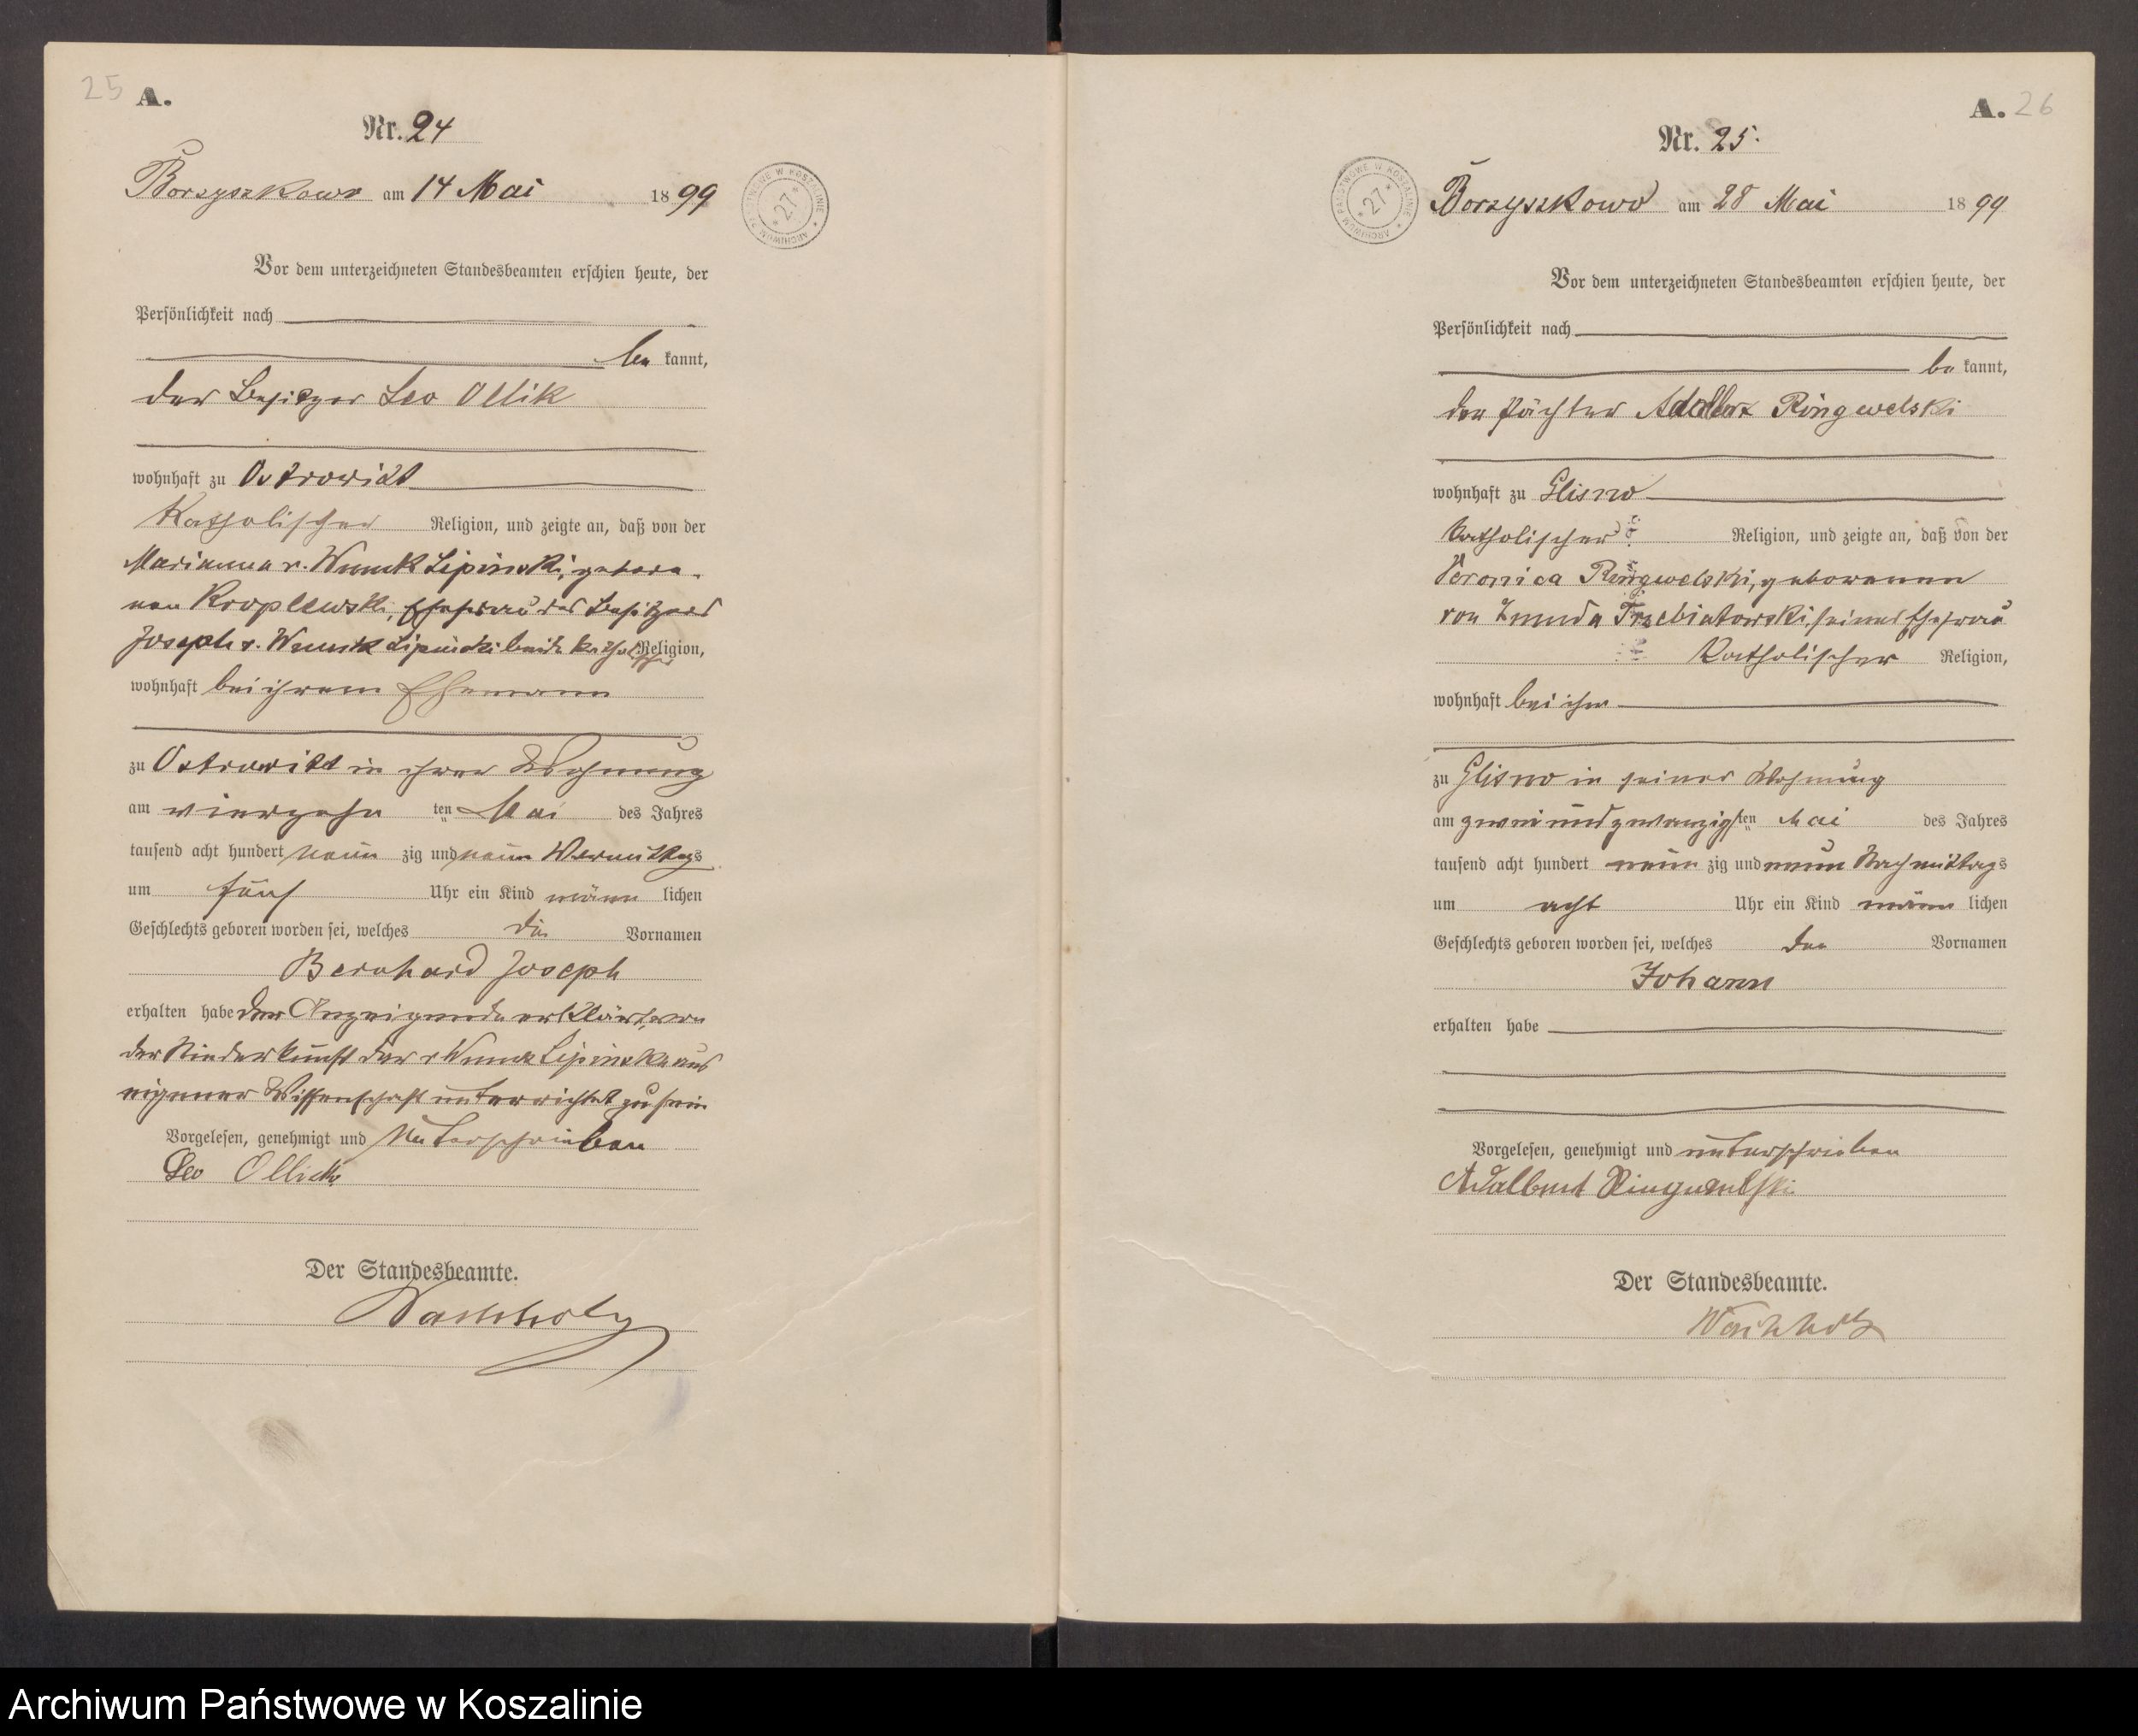 25 A.
Nr. 24
Borzyszkowo am 14 Mai 1899
ARCHIWUM PAŃSTWOWE W KOSZALINIE * 27 *
Vor dem unterzeichneten Standesbeamten erschien heute, der
Persönlichkeit nach
be kannt,
der Besitzer Leo Ollik
wohnhaft zu Ostrowitt
Katholischer Religion, und zeigte an, daß von der
Marianna v. Wnuk Lipinski, gebore-
nen Kroplewski, Ehefrau des Besitzers
Joseph v. Wnuk Lipinski beide katholischer Religion,
wohnhaft bei ihrem Ehemann
zu Ostrowitt in ihrer Wohnung
am vierzehn ten Mai des Jahres
tausend acht hundert neun zig und neun Vormittags
um fünf Uhr ein Kind männ lichen
Geschlechts geboren worden sei, welches die Vornamen
Bernhard Joseph
erhalten habe der Anzeigende erklärt, von
der Niederkunft der v Wnuk Lipinska aus
eigener Wissenschaft unterrichtet zu sein
Vorgelesen, genehmigt und unterschrieben
Leo Ollick
Der Standesbeamte.
Wachholz
A. 26
Nr. 25.
ARCHIWUM PAŃSTWOWE W KOSZALINIE * 27 *
Borzyszkowo am 28 Mai 1899
Vor dem unterzeichneten Standesbeamten erschien heute, der
Persönlichkeit nach
be kannt,
der Pächter Adalbert Ringwelski
wohnhaft zu Glisno
katholischer Religion, und zeigte an, daß von der
Veronica Ringwelski, geborenen
von Zmuda Trzebiatowski, seiner Ehefrau
Katholischer Religion,
wohnhaft bei ihm
zu Glisno in seiner Wohnung
am zwei und zwanzigsten Mai des Jahres
tausend acht hundert neun zig und neun Nachmittags
um acht Uhr ein Kind männ lichen
Geschlechts geboren worden sei, welches den Vornamen
Johann
erhalten habe
Vorgelesen, genehmigt und unterschrieben
Adalbert Ringwelski
Der Standesbeamte.
Wachholz
Archiwum Państwowe w Koszalinie